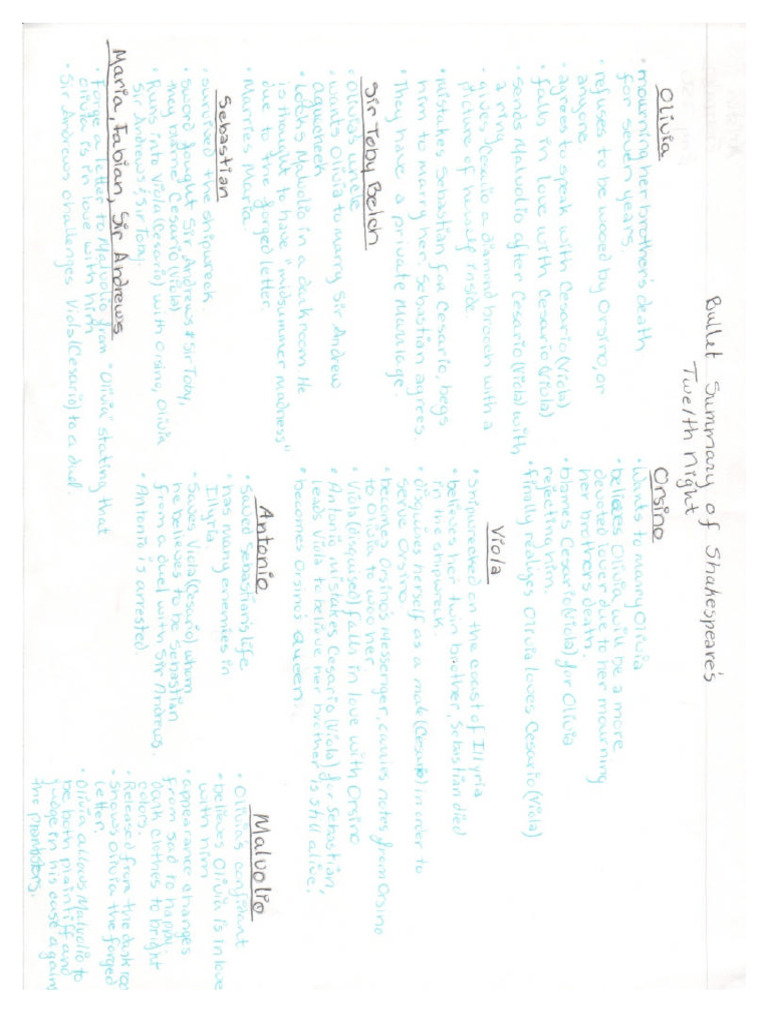 Bullet Summary of Shakespeare's
Twelth Night
Olivia
• mourning her brother's death
for seven years.
• refuses to be wooed by Orsino, or
anyone
• agrees to speak with Cesario (Viola)
• falls in love with Cesario (Viola)
• sends Malvolio after Cesario (Viola) with
a ring
• gives Cesario a diamond brooch with a
picture of herself inside.
• mistakes Sebastian for Cesario, begs
him to marry her, Sebastian agrees.
• They have a private marriage.
Orsino
• Wants to marry Olivia
• believes Olivia will be a more
devoted lover due to her mourning
her brothers death.
• blames Cesario (Viola) for Olivia
rejecting him.
• finally realizes Olivia loves Cesario (Viola)
Viola
• Shipwrecked on the coast of Illyria
• believes her twin brother, Sebastian died
in the shipwreck.
• disguises herself as a male (Cesario) in order to
serve Orsino
• becomes Orsino's Messenger, carries notes from Orsino
to Olivia to woo her.
• Viola (disguised) falls in love with Orsino
• Antonio, mistakes Cesario (Viola) for Sebastian,
leads Viola to believe her brother is still alive.
• becomes Orsino's Queen.
Sir Toby Belch
• Olivia's uncle
• wants Olivia to marry Sir Andrew
Aguecheek
• Locks Malvolio in a dark room. He
is thought to have "midsummer madness"
due to the forged letter.
• Marries Maria.
Sebastian
• survived the shipwreck.
• sword fought Sir Andrews & Sir Toby,
they blame Cesario (Viola)
• Runs into Viola (Cesario) with Orsino, Olivia
Sir Andrews & Sir Toby.
Antonio
• saved Sebastian's life
• has many enemies in
Illyria.
• Saves Viola (Cesario) whom
he believes to be Sebastian
from a duel with Sir Andrews.
• Antonio is arrested
Malvolio
• Olivia's confidant
• believes Olivia is in love
with him
• appearance changes
from sad to happy,
dark clothes to bright
colors.
• Released from the dark roo
• shows Olivia the forged
letter.
• Olivia allows Malvolio to
be both plaintiff and
judge in his case again
the pranksters.
Maria, Fabian, Sir Andrews
• forge a letter to Malvolio from "Olivia" stating that
Olivia is in love with him
• Sir Andrews challenges Viola (Cesario) to a duel.